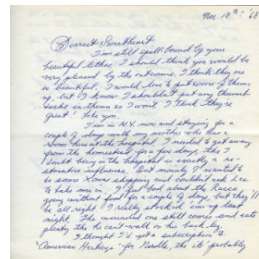 Nov. 18th '68
Dearest Sweetheart
I'm still spell-bound by your
beautiful letter. I should think you would be
very pleased by the outcome. I think they are
so beautiful. I would love to put some of them
up, but I know I shouldn't put any thumb
tacks in them so I won't. I think they're
great! like you.
I am in N.Y. now and staying for a
couple of days with my mother who has a
room here at the hospital. I needed to get away
from the homestead for a few days, tho I
doubt being in the hospital is exactly a re-
storative influence. But mostly I wanted to
do some Xmas shopping and couldn't ask her
to take me in. I feel bad about the
going without food for a couple of days, but they'll
be all right. I really stocked em up last
night. The wounded one still comes and eats
plenty tho he can't walk on his bad leg.
I thought I'd get a subscription to
"American Heritage" for tho it's probably